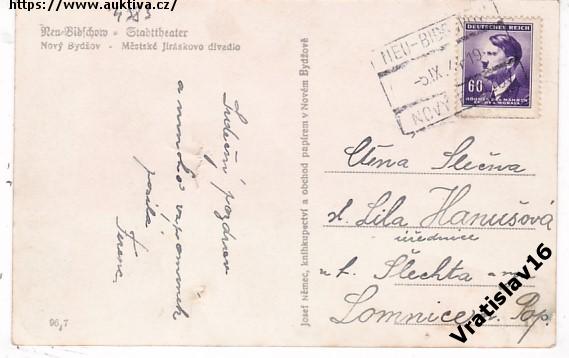 https://www.auktiva.cz/
Neu-Bidschow - Stadttheater
Nový Bydžov - Městské Jiráskovo divadlo
Srdečný pozdrav
a mnoho vzpomínek
posílá
96,7
Josef Němec, knihkupectví a obchod papírem v Novém Bydžově
NEU-BIDSCHOW
-5.IX.
NOVÝ
DEUTSCHES REICH
60
BÖHMEN UND MÄHREN
Ctěna Slečna
sl. Lila Hanušová
úřednice
u f. Šlechta
Lomnice n. Pop.
Vratislav16